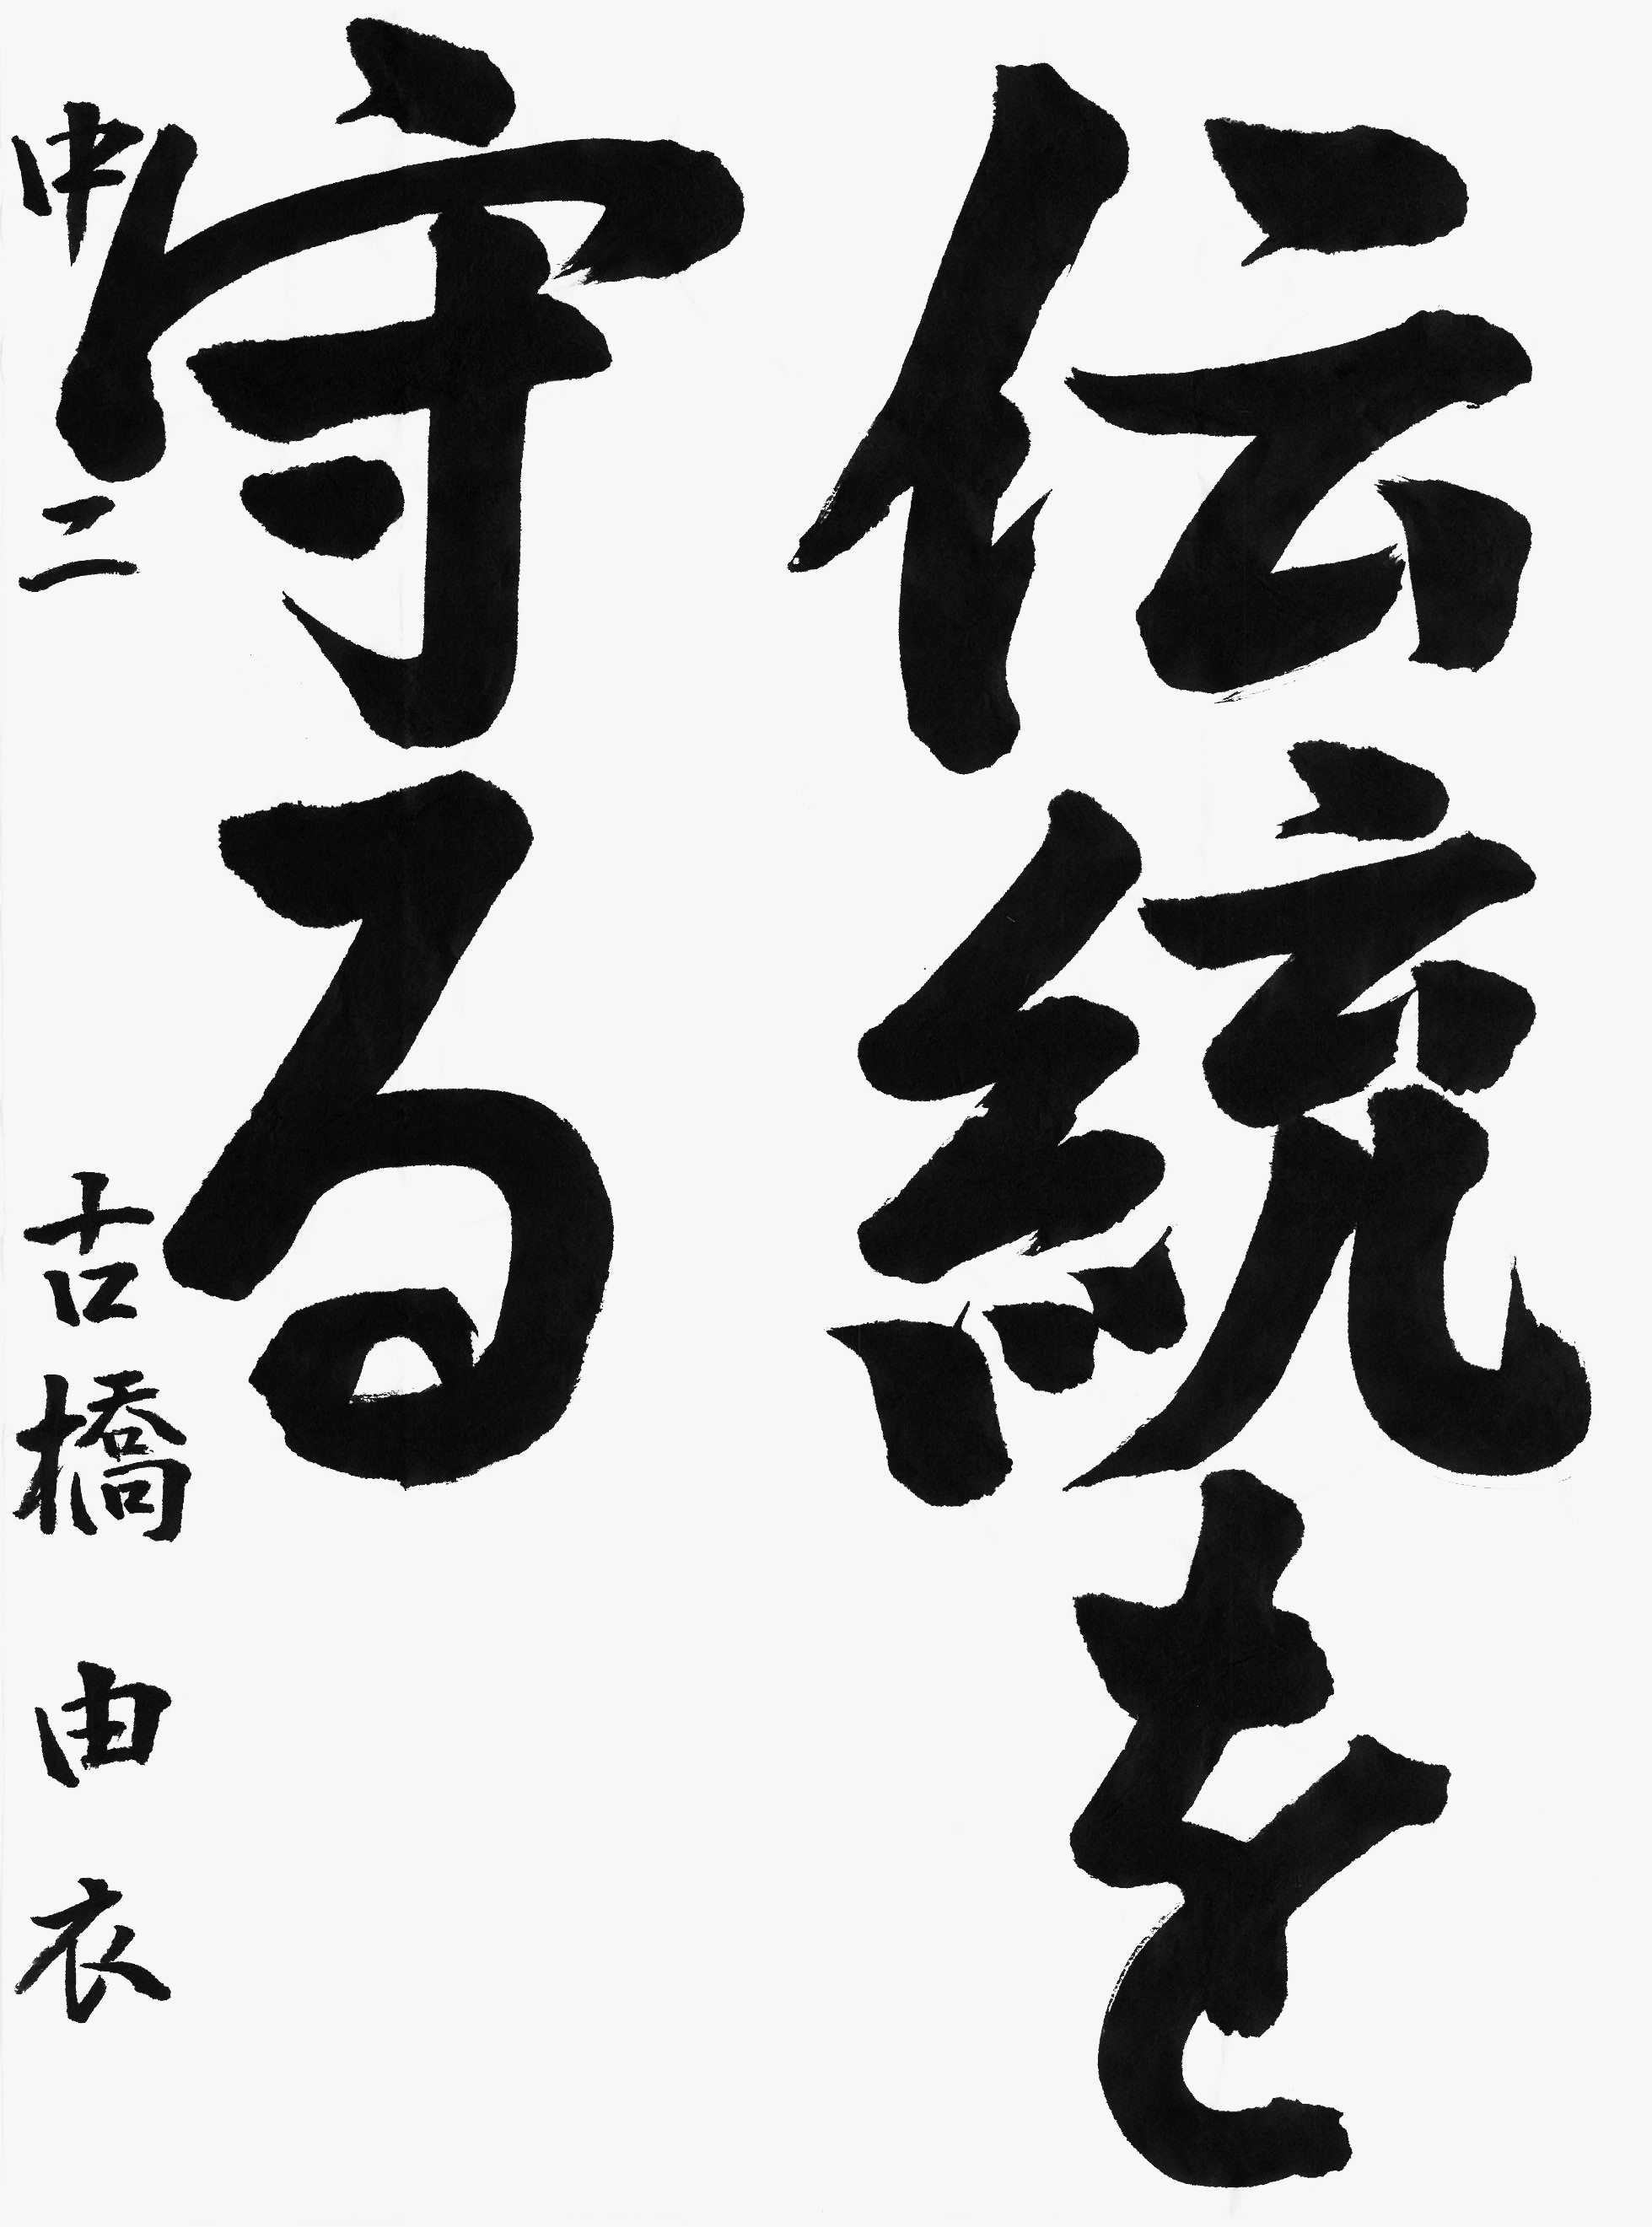 伝統を
守る
中二 古橋 由衣